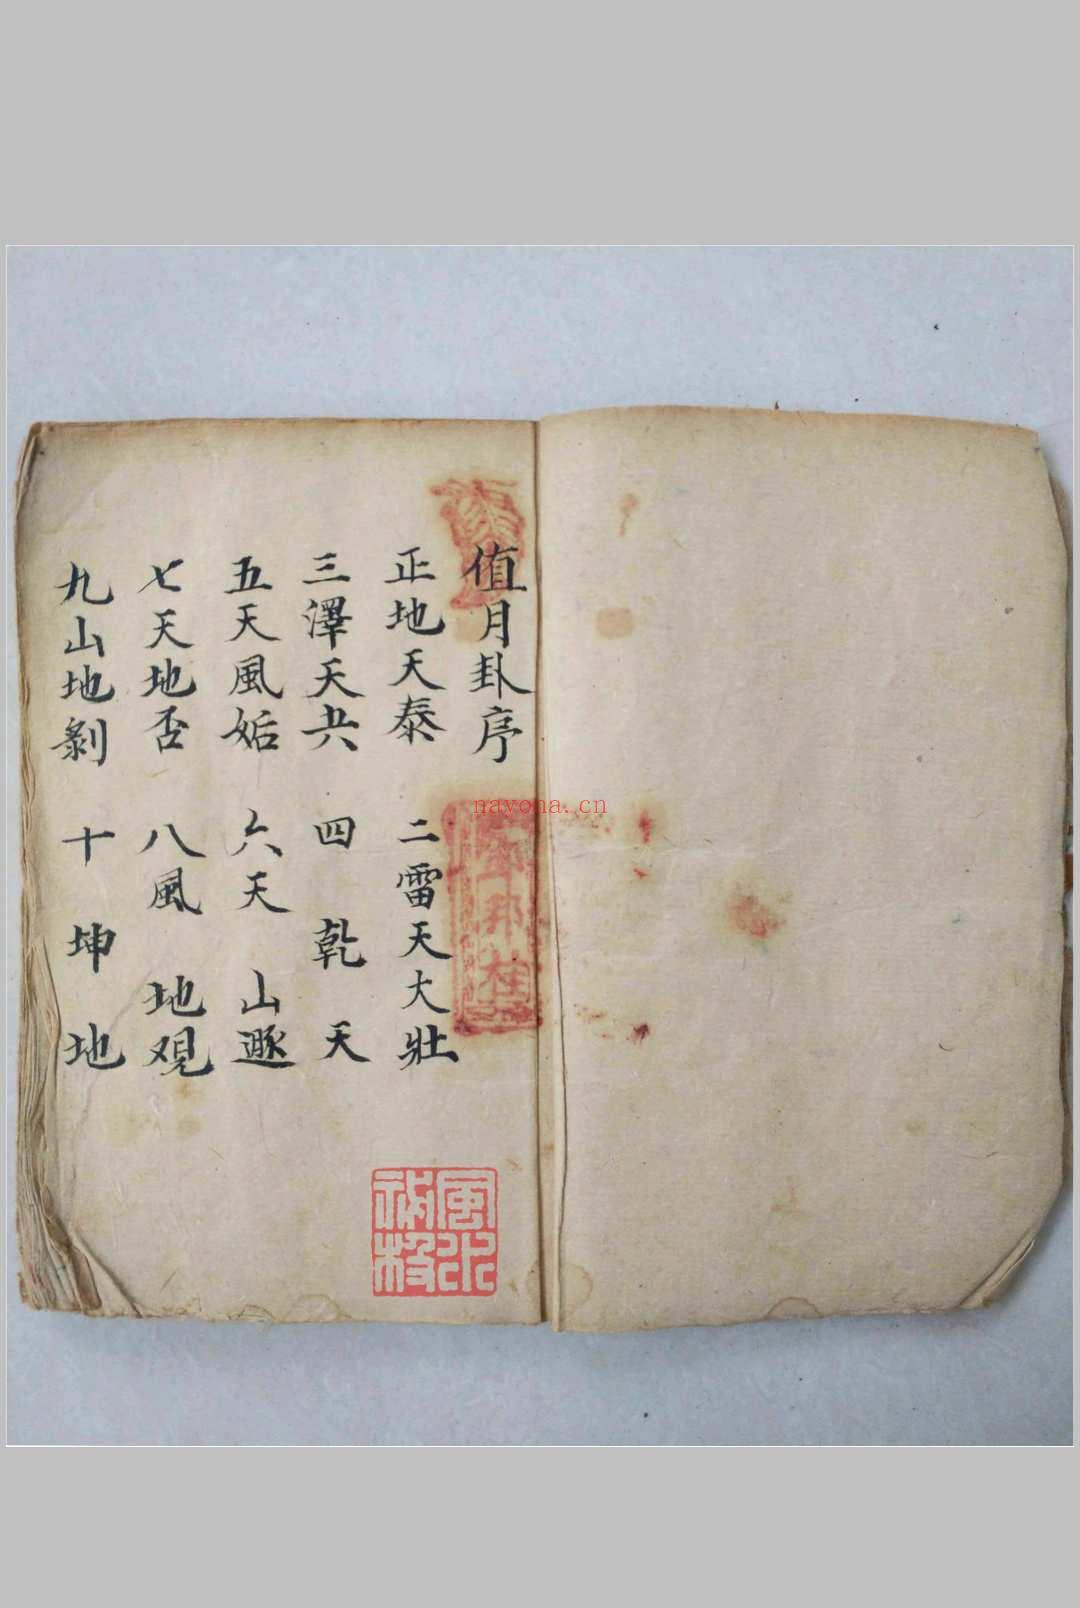 值月卦序
正地天泰 二雷天大壯
三澤天夬 四乾天
五天風姤 六天山遯
七天地否 八風地观
九山地剝 十坤地
nayona.cn
風水